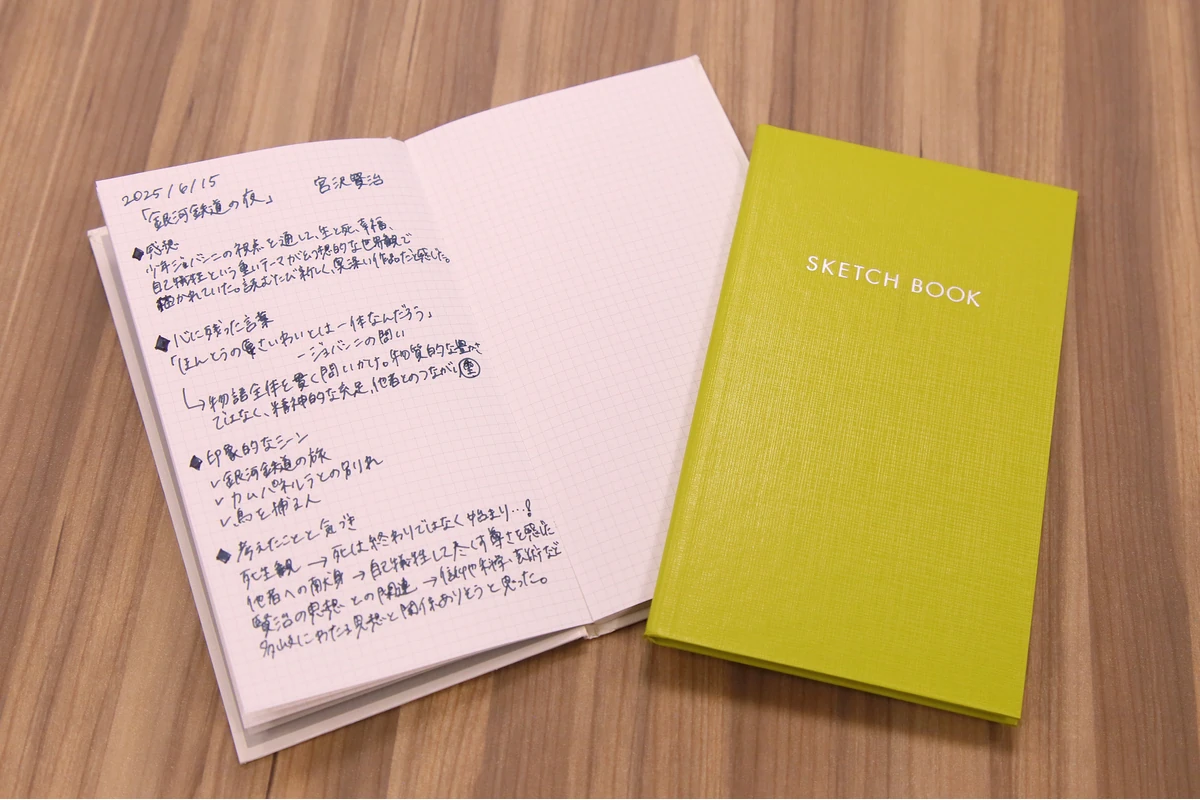 2025/6/15
「銀河鉄道の夜」 宮沢賢治
◆感想
少年ジョバンニの視点を通して、生と死、幸福、
自己犠牲という重いテーマが幻想的な世界観で
描かれていた。読むたび新しく、奥深い作品だと感じた。
◆心に残った言葉
「ほんとうのさいわいとは一体なんだろう」
－ジョバンニの問い
↳物語全体を貫く問いかけ。物質的な豊かさ
ではなく、精神的な充足、他者とのつながり
◆印象的なシーン
✓銀河鉄道の旅
✓カムパネルラとの別れ
✓鳥を捕る人
◆考えたことと気づき
死生観 → 死は終わりではなく始まり…!
他者への献身 → 自己犠牲して尽くす尊さを感じた
賢治の思想との関連 → 信仰や科学、芸術など
多岐にわたる思想と関係ありそうと思った。
SKETCH BOOK